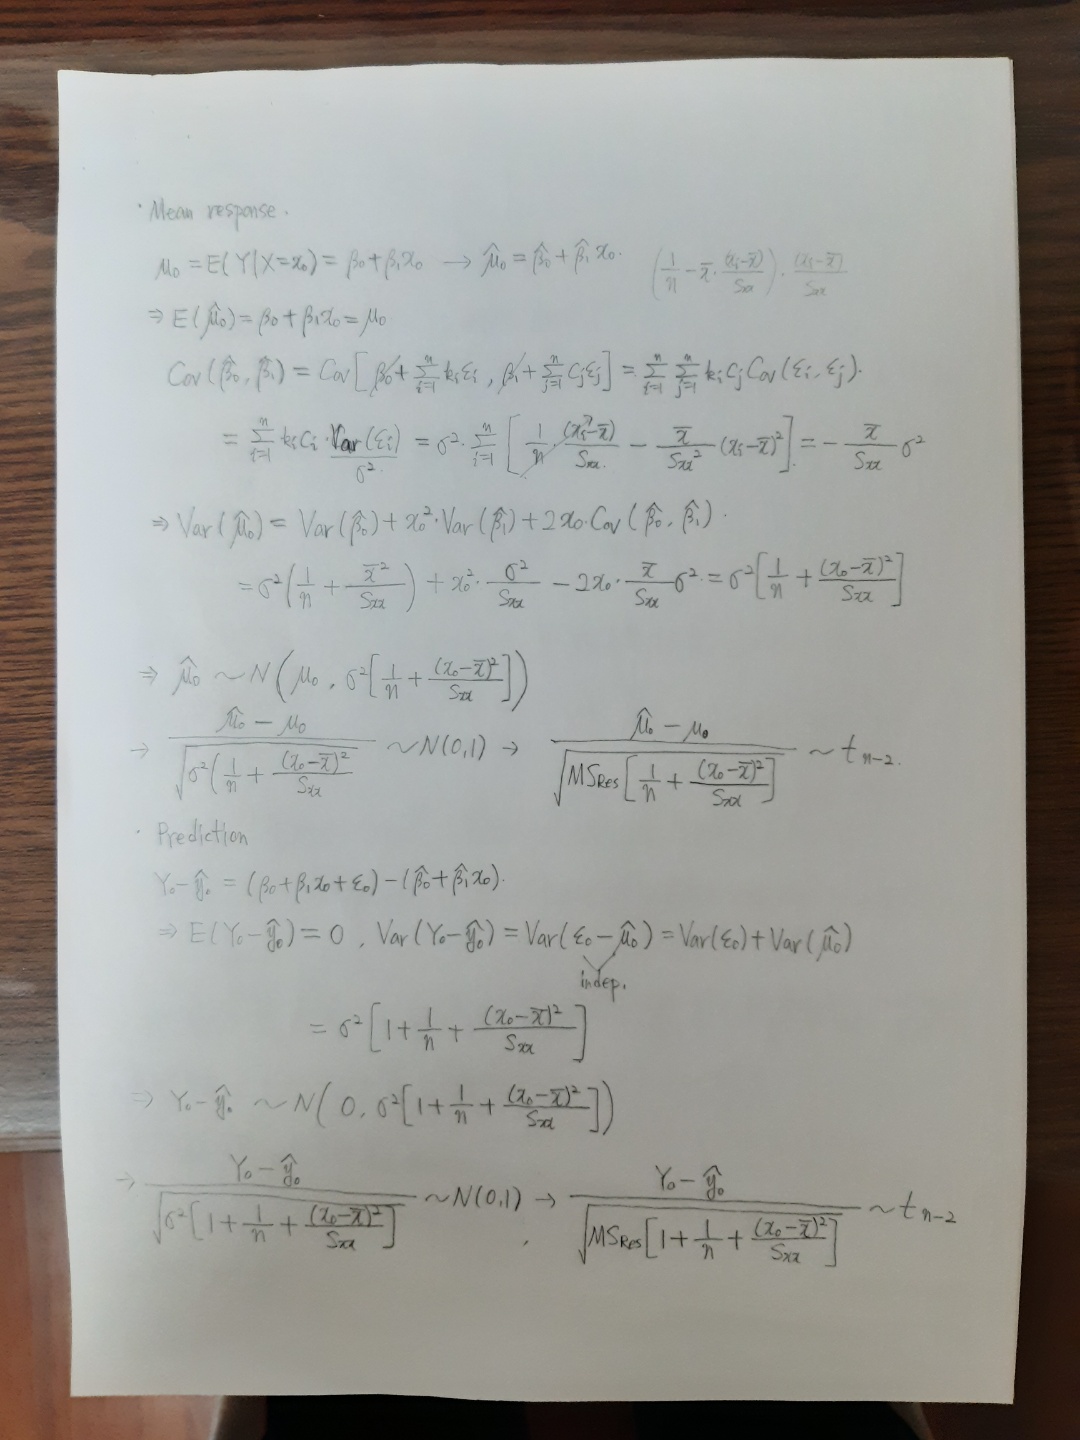 · Mean response.
μ₀ = E(Y|X=x₀) = β₀+β₁x₀ → μ̂₀ = β̂₀+β̂₁x₀. (1/n − x̄·(xᵢ−x̄)/Sxx)·(xᵢ−x̄)/Sxx
⇒ E(μ̂₀) = β₀+β₁x₀ = μ₀
Cov(β̂₀, β̂₁) = Cov[β₀+∑ⁿᵢ₌₁kᵢεᵢ, β₁+∑ⁿⱼ₌₁cⱼεⱼ] = ∑ⁿᵢ₌₁∑ⁿⱼ₌₁kᵢcⱼCov(εᵢ, εⱼ).
= ∑ⁿᵢ₌₁kᵢcᵢ·Var(εᵢ) = σ²·∑ⁿᵢ₌₁[1/n (xᵢ−x̄)/Sxx. − x̄/Sxx²(xᵢ−x̄)²] = −x̄/Sxx σ²
σ²
⇒ Var(μ̂₀) = Var(β̂₀)+x₀²·Var(β̂₁)+2x₀·Cov(β̂₀, β̂₁).
= σ²(1/n + x̄²/Sxx) + x₀²·σ²/Sxx − 2x₀·x̄/Sxx σ² = σ²[1/n + (x₀−x̄)²/Sxx]
⇒ μ̂₀ ~ N(μ₀, σ²[1/n + (x₀−x̄)²/Sxx])
→ (μ̂₀ − μ₀)/√(σ²(1/n + (x₀−x̄)²/Sxx ~ N(0,1) → (μ̂₀ − μ₀)/√(MSRes[1/n + (x₀−x̄)²/Sxx]) ~ tn−2.
· Prediction
Y₀−ŷ₀ = (β₀+β₁x₀+ε₀)−(β̂₀+β̂₁x₀).
⇒ E(Y₀−ŷ₀) = 0, Var(Y₀−ŷ₀) = Var(ε₀−μ̂₀) = Var(ε₀)+Var(μ̂₀)
indep.
= σ²[1+1/n + (x₀−x̄)²/Sxx]
⇒ Y₀−ŷ₀ ~ N(0, σ²[1+1/n + (x₀−x̄)²/Sxx])
→ (Y₀−ŷ₀)/√(σ²[1+1/n + (x₀−x̄)²/Sxx]) ~ N(0,1) → (Y₀−ŷ₀)/√(MSRes[1+1/n + (x₀−x̄)²/Sxx]) ~ tn−2